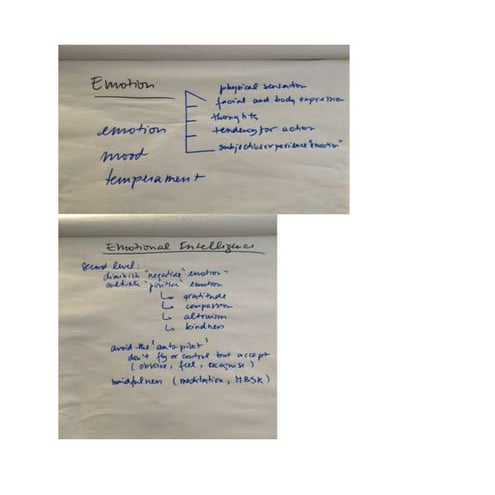 Emotion
physical sensation
facial and body expression
thoughts
emotion
tendency for action
subjective experience "emotion"
mood
temperament
Emotional Intelligence
second level:
diminish "negative" emotion
cultivate "positive" emotion
gratitude
compassion
altruism
kindness
avoid the 'autopilot'
don't fly or control but accept
(observe, feel, recognise)
mindfulness (meditation, MBSR)